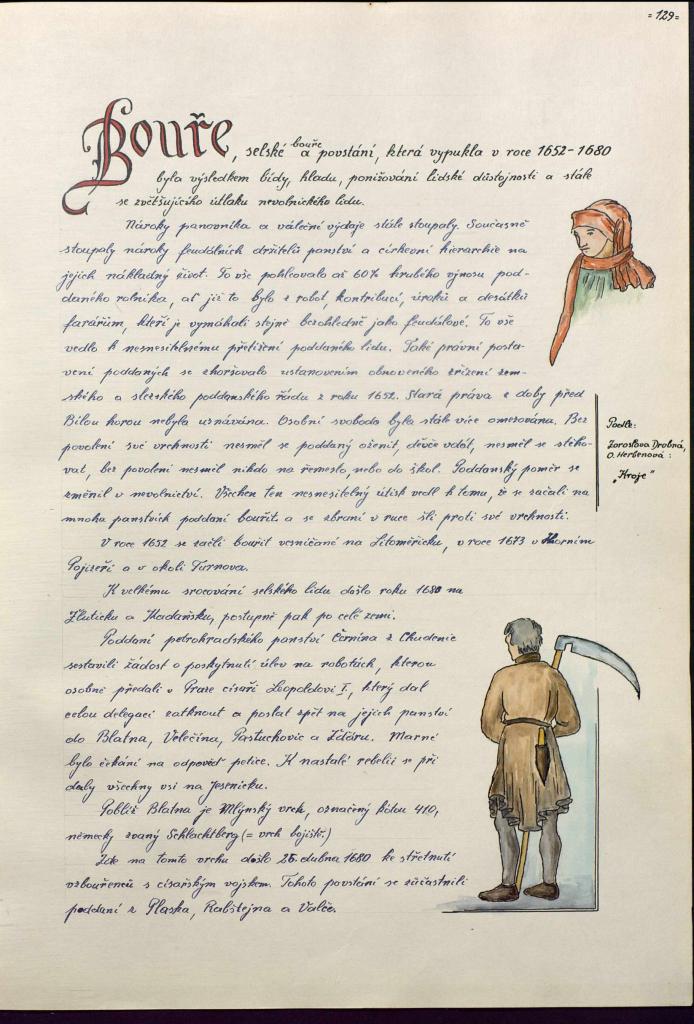 = 129 =
Bouře, selské bouře a povstání, která vypukla v roce 1652-1680
byla výsledkem bídy, hladu, ponižování lidské důstojnosti a stále
se zvětšujícího útlaku nevolnického lidu.
Nároky panovníka a válečné výdaje stále stoupaly. Současně
stoupaly nároky feudálních držitelů panství a církevní hierarchie na
jejich nákladný život. To vše pohlcovalo až 60% hrubého výnosu pod-
daného rolníka, ať již to bylo z robot, kontribucí, úroků a desátků
farářům, kteří je vymáhali stejně bezohledně jako feudálové. To vše
vedlo k nesnesitelnému přetížení poddaného lidu. Také právní posta-
vení poddaných se zhoršovalo ustanovením obnoveného zřízení zem-
ského a slezského poddanského řádu z roku 1652. Stará práva z doby před
Bílou horou nebyla uznávána. Osobní svoboda byla stále více omezována. Bez
povolení své vrchnosti nesměl se poddaný oženit, děvče vdát, nesměl se stěho-
vat, bez povolení nesměl nikdo na řemeslo, nebo do škol. Poddanský poměr se
změnil v nevolnictví. Všechen ten nesnesitelný útisk vedl k tomu, že se začali na
mnoha panstvích poddaní bouřit a se zbraní v ruce šli proti své vrchnosti.
V roce 1652 se začli bouřit vesničané na Litoměřicku, v roce 1673 v Horním
Pojizeří a v okolí Turnova.
K velkému srocování selského lidu došlo roku 1680 na
Žluticku a Kadaňsku, postupně pak po celé zemi.
Poddaní petrohradského panství Černína z Chudenic
sestavili žádost o poskytnutí úlev na robotách, kterou
osobně předali v Praze císaři Leopoldovi I., který dal
celou delegaci zatknout a poslat zpět na jejich panství
do Blatna, Velečína, Pastuchovic a Žďáru. Marné
bylo čekání na odpověď petice. K nastalé rebelii se při
daly všechny vsi na Jesenicku.
Poblíž Blatna je Mlýnský vrch, označený kótou 410,
německy zvaný Schlachtberg (= vrch bojiště.)
Zde na tomto vrchu došlo 25. dubna 1680 ke střetnutí
vzbouřenců s císařským vojskem. Tohoto povstání se zúčastnili
poddaní z Plaska, Rabštejna a Valče.
Podle:
Jaroslava Drobná,
O. Herbenová:
"Kroje"